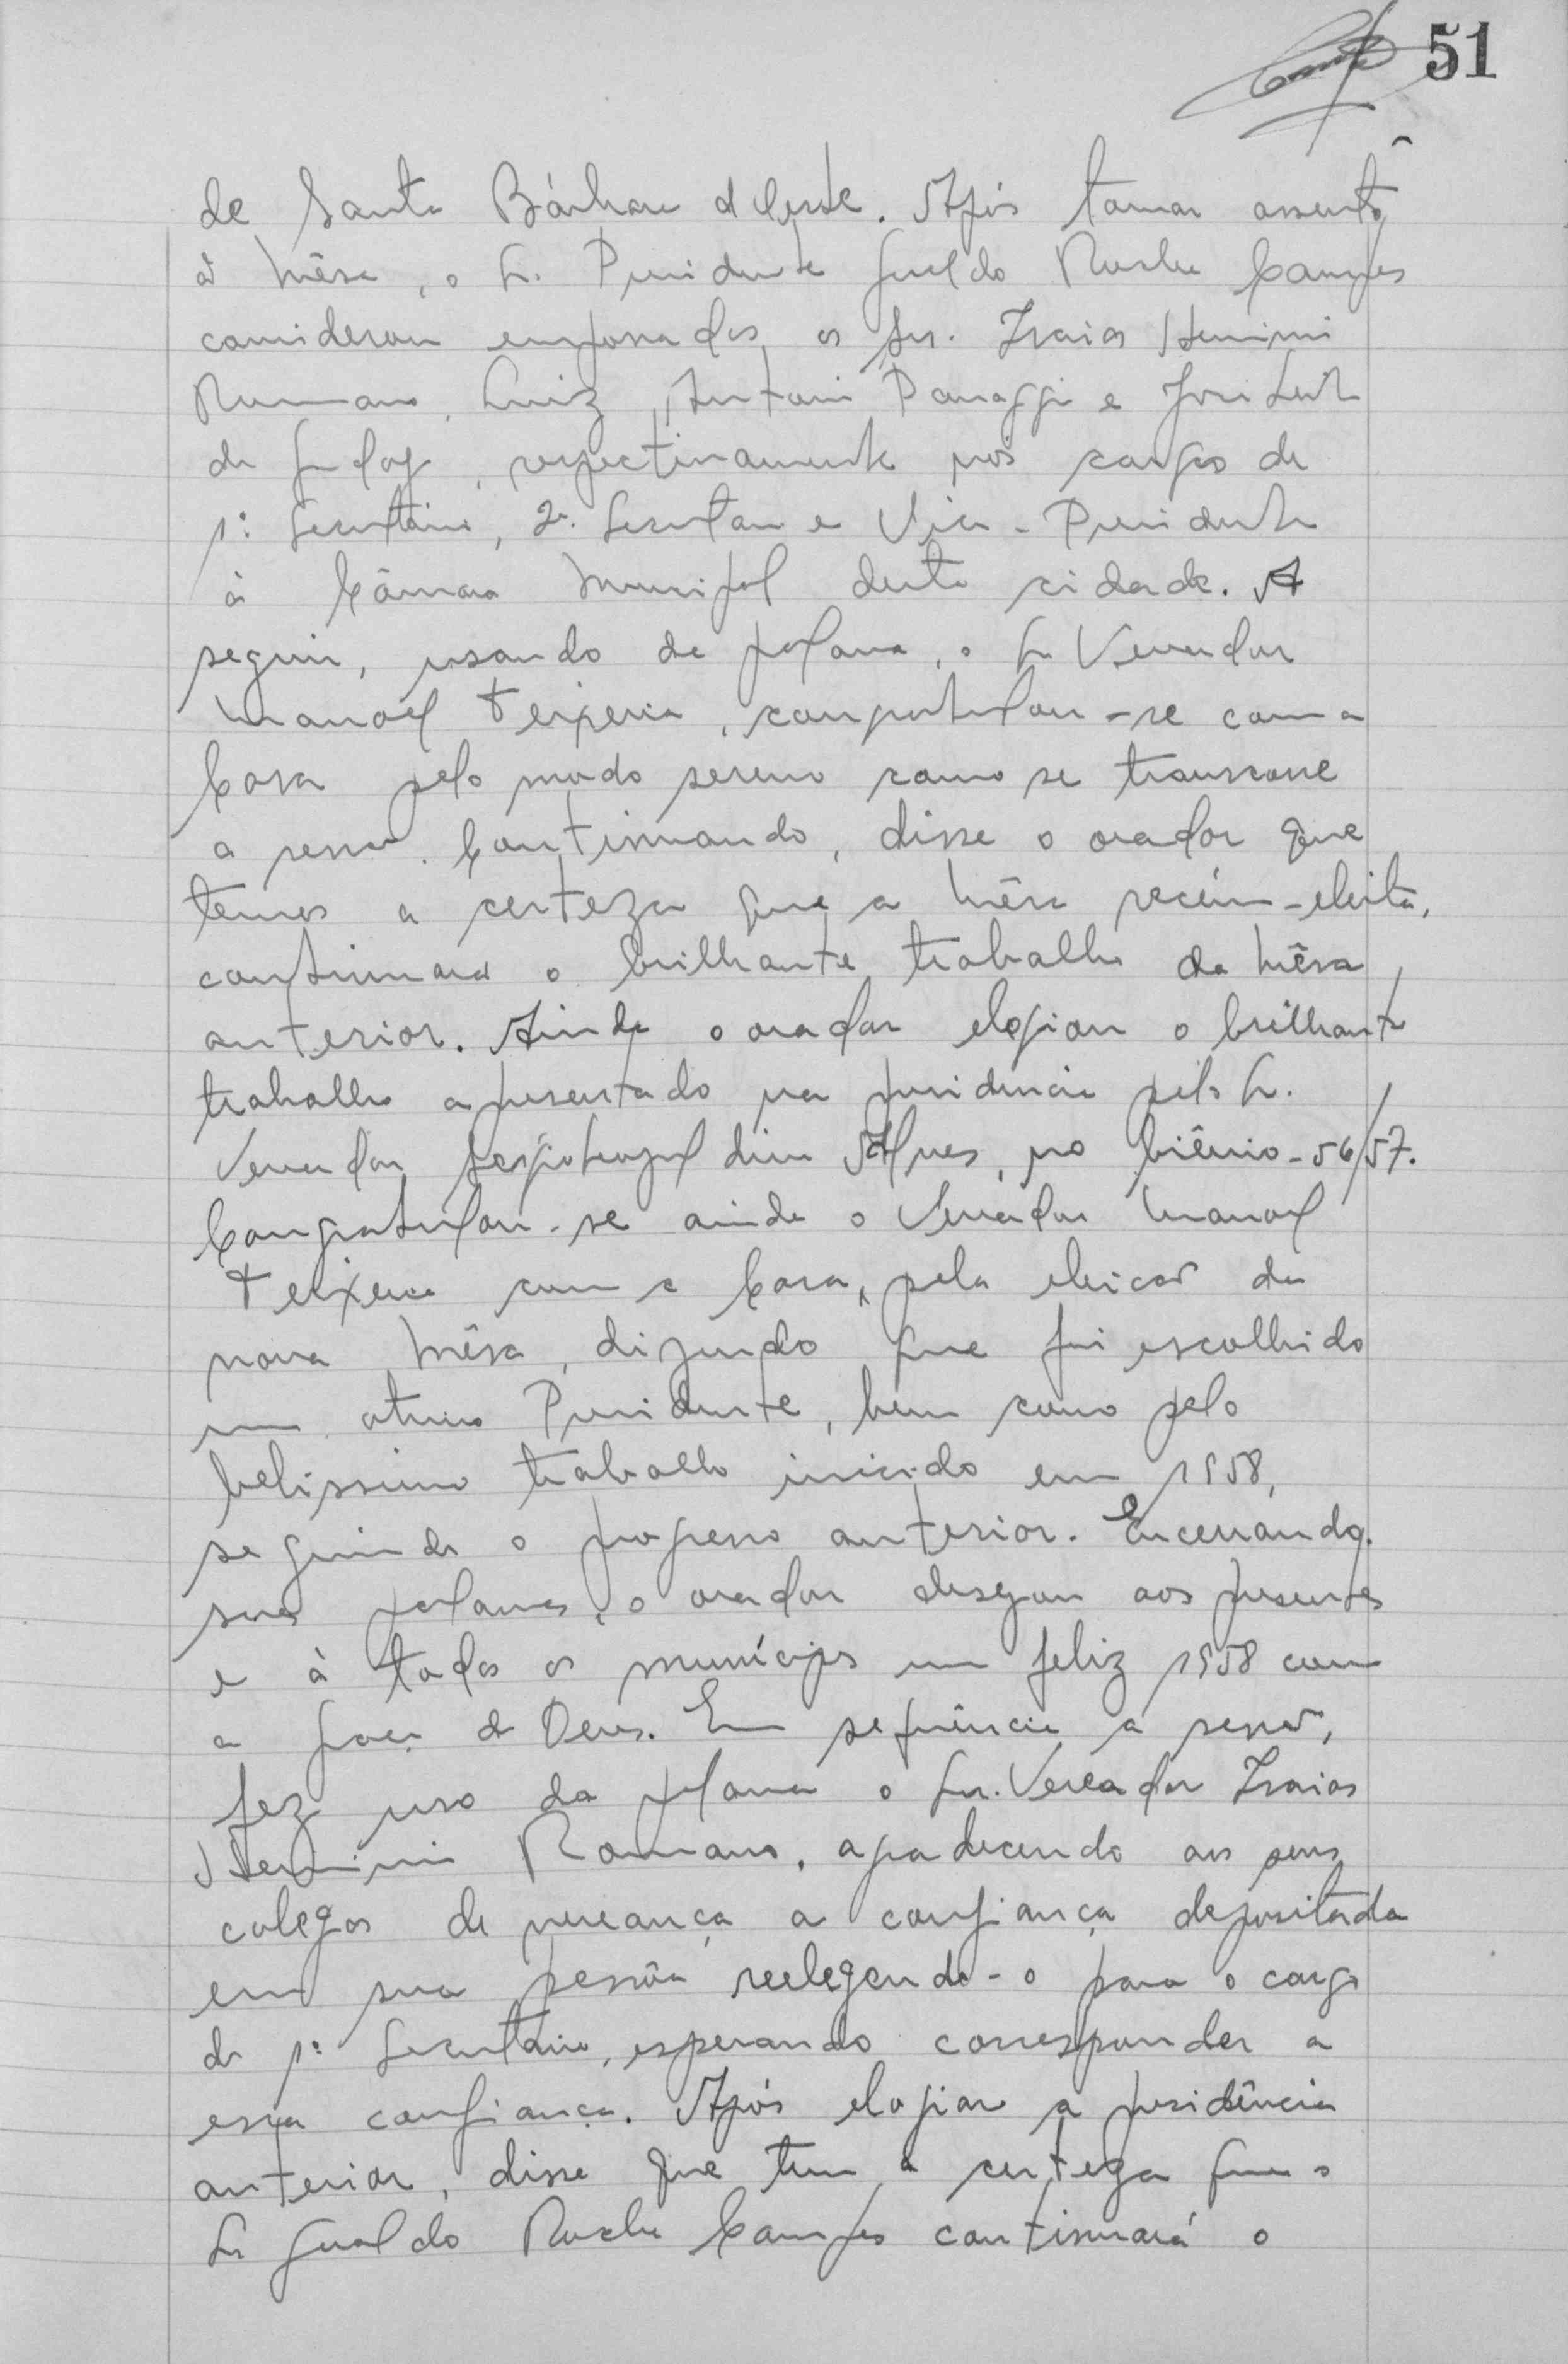 51
de Santa Bárbara d'Oeste. Após tomar assento
à Mêsa, o Sr. Presidente Gueldo Rocha Campos
considerou empossados os Srs. Isaias Herminio
Romano, Luiz Antonio Panaggi e José Luiz
de Godoy, respectivamente nos cargos de
1º Secretário, 2º Secretario e Vice-Presidente
à Câmara Municipal desta cidade. A
seguir, usando da palavra, o Sr Vereador
Manoel Teixeira, congratulou-se com a
Casa pelo modo sereno como se transcorre
a sessão. Continuando, disse o orador que
temos a certeza que a Mêsa recém-eleita,
continuará o brilhante trabalho da Mêsa
anterior. Ainda o orador elogiou o brilhante
trabalho apresentado na presidencia pelo Sr.
Vereador Dias Alves, no biênio-56/57.
Congratulou-se ainda o Vereador Manoel
Teixeira com a Casa, pela eleição da
nova Mêsa, dizendo que foi escolhido
um otimo Presidente, bem como pelo
belissimo trabalho iniciado em 1958,
seguindo o progresso anterior. Encerrando
suas palavras, o orador desejou aos presentes
e à todos os munícipes um feliz 1958 com
a graça de Deus. Em sequência a sessão,
fez uso da palavra o Sr. Vereador Isaias
Herminio Romano, agradecendo aos seus
colegas de vereança a confiança depositada
em sua pessôa reelegendo-o para o cargo
de 1º Secretário, esperando corresponder a
essa confiança. Após elogiar a presidência
anterior, disse que tem a certeza que o
Sr Gualdo Rocha Campos continuará o